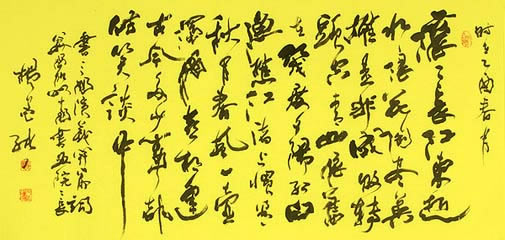 滚〻长江东逝
水浪花淘尽英
雄是非成败转
头空青山依旧
在几度夕阳红白
渔樵江渚上惯看
秋月春风一壶
浊酒喜相逢
古今多少事都
付笑谈中
书三国演义开篇词